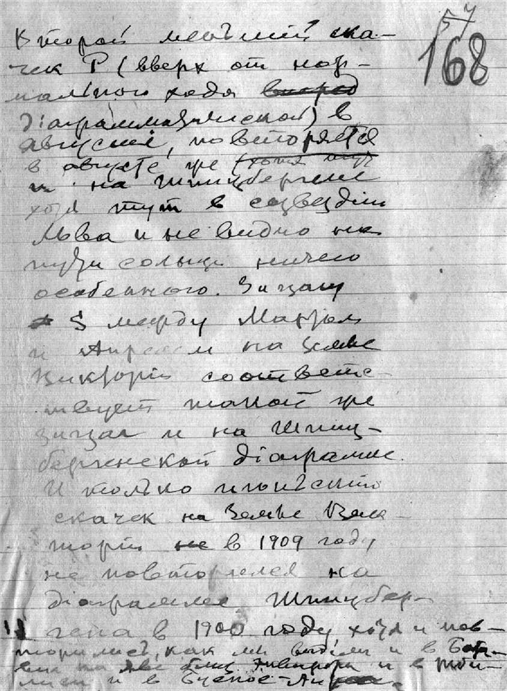 57
168
Второй меньший ска-
чек P (вверх от нор-
мального хода вперед
діаграммалинской) в
августе, повторяется
в августе же (хотя тут
и на Шпицбергене
хотя тут в созвездіи
Льва и не видно на
пути солнца ничего
особенного. Зигзаг
S между Мартом
и Апрелем на Земле
Викторіи соответс-
твует такой же
зигзаг и на Шпиц-
бергенской діаграмме.
И только июньскій
скачек на Земле Вик-
торіи не в 1909 году
не повторился на
діаграмме Шпицбер-
гена в 1900 году хотя и пов-
торился, как мы видели и в Бата-
віи на Яве близ Экватора и в
и в Буенос-